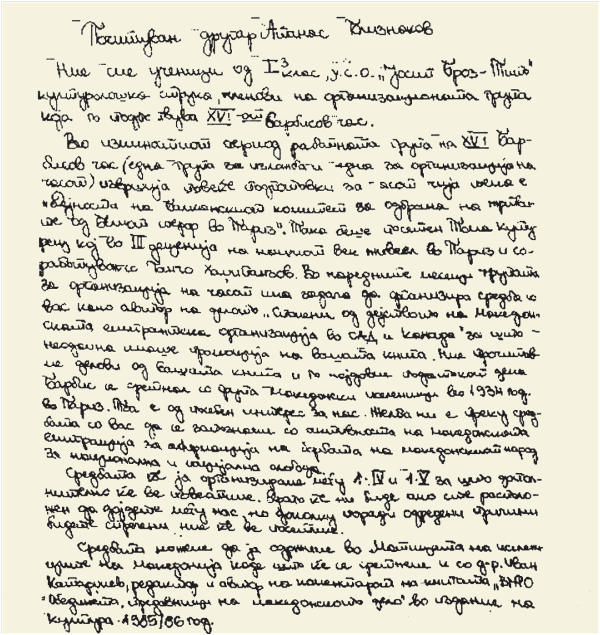 Почитуван другар Атанас Близнаков
Ние сме ученици од I³ клас, У.С.О. „Јосип Броз-Тито"
културолошка струка, членови на организационата група
која го подготвува XVI-от Барбисов час.
Во изминатиот период работната група на XVI Бар-
бисов час (една група за изложба и една за организација на
часот) извршија повеќе подготовки за часот чија тема е
„Дејноста на Балканскиот комитет за одбрана на жртви-
те од белиот терор во Париз". Така беше посетен Тома Куту
рец кој во III деценија на нашиот век живеел во Париз и со-
работувал со Панчо Хаџи Панзов. Во наредните месеци групата
за организација на часот има задача да организира средба со
вас како автор на делото „Спомени од дејството на македон-
ската емигрантска организација во САД и Канада" за што
неодамна имаше промоција на вашата книга. Ние прочитав-
ме делови од Вашата книга и го најдовме податокот дека
Барбис се сретнал со група македонски иселеници во 1934 год.
во Париз. Тоа е од посебен интерес за нас. Желба ни е преку сред-
бата со вас да се запознаеме со активноста на македонската
емиграција за афирмација на борбата на македонскиот народ
за национална и социјална слобода.
Средбата ќе ја организираме меѓу 1.IV и 1.V за што допол-
нително ќе ве известиме. Драго ќе ни биде ако сте располо-
жен да дојдете меѓу нас, но доколку поради одредени причини
бидете спречени ние ќе ве посетиме.
Средбата можеме да ја одржиме во Матицата на иселени-
ците на Македонија каде што ќе се сретнеме и со д-р. Иван
Катарџиев, редактор и автор на коментарот на книгата „ВМРО
Обединета, предавници на македонското дело" во издание на
Култура 1985/86 год.